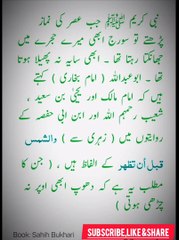 نبی کریم ﷺ جب عصر کی نماز
پڑھتے تو سورج ابھی میرے حجرے میں
جھانکتا رہتا تھا۔ ابھی سایہ نہ پھیلا ہوتا
تھا۔ ابوعبداللہ (امام بخاری) کہتے
ہیں کہ امام مالک اور یحییٰ بن سعید ،
شعیب رحمہم اللہ اور ابن ابی حفصہ کے
روایتوں میں (زہری سے) والشمس
قبل أن تظهر کے الفاظ ہیں ، (جن کا
مطلب یہ ہے کہ دھوپ ابھی اوپر نہ
چڑھی ہوتی)
Book: Sahih Bukhari
SUBSCRIBE,LIKE&SHARE